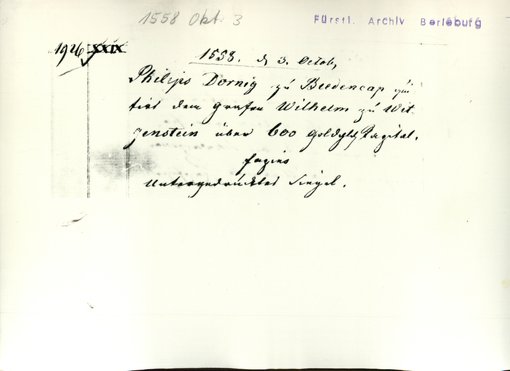 1558 Okt. 3
Fürstl. Archiv Berleburg
1926 XXIX
1558. d 3. Octob,
Philips Dornig zu Biedencap
dem Grafen Wilhelm zu Wit
genstein über 600 goldgld Capital.
Untergedrücktes Siegel.